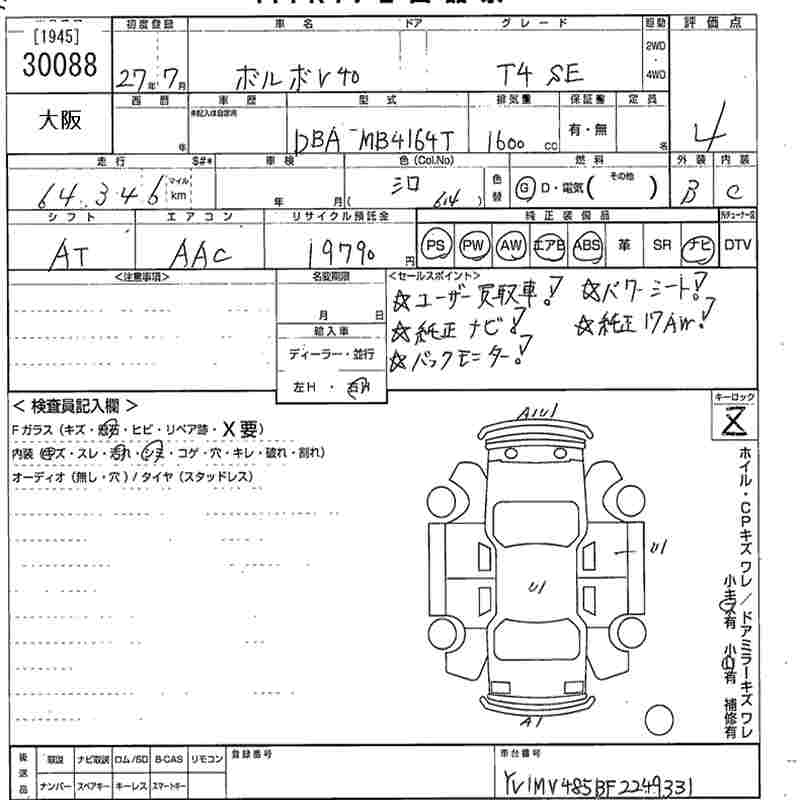 [1945]
30088
大阪
初度登録
27年 7月
車名
ボルボV40
ドア
グレード
T4 SE
駆動
2WD
・
4WD
評価点
4
西暦
年
車歴
未記入は自家用
型式
DBA-MB4164T
排気量
1600 CC
保証書
有・無
定員
名
走行
S#*
64,346 マイル km
車検
年 月
色(Col.No)
シロ
( 614 )
色替
燃料
G D・電気( その他 )
外装
B
内装
C
シフト
AT
エアコン
AAC
リサイクル預託金
19790 円
純正装備品
PS PW AW エアB ABS 革 SR ナビ
DTV
<注意事項>
名変期限
月 日
輸入車
ディーラー・並行
左H・右H
<セールスポイント>
☆ユーザー買取車! ☆パワーシート!
☆純正ナビ! ☆純正17AW!
☆バックモニター!
<検査員記入欄>
Fガラス(キズ・飛石・ヒビ・リペア跡・X要)
内装(キズ・スレ・汚れ・シミ・コゲ・穴・キレ・破れ・割れ)
オーディオ(無し・穴)/タイヤ(スタッドレス)
キーロック
A1U1
U1
U1
A1
ホイル・CPキズ ワレ/ドアミラーキズ ワレ
小キズ有 小凹有 補修有
後送品
取説 ナビ取説 ロム/SD B-CAS リモコン
ナンバー スペアキー キーレス スマートキー
登録番号
車台番号
YV1MV485BF2249331